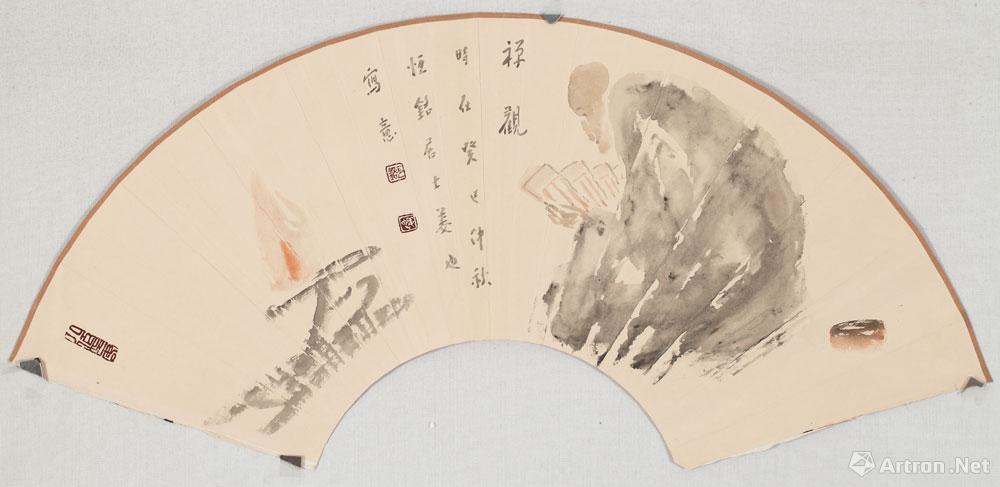 禅觀
時在癸巳仲秋
恒銘居士姜也
寫意
Artron.Net